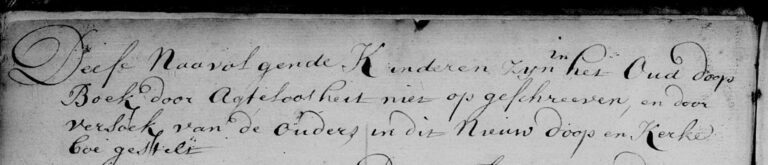 Deese Naavolgende Kinderen zyn in het Oud doop
Boek door Agteloosheit niet op geschreeven, en door
versoek van de ouders, in dit Nieuw doop en Kerke
boe gestelt